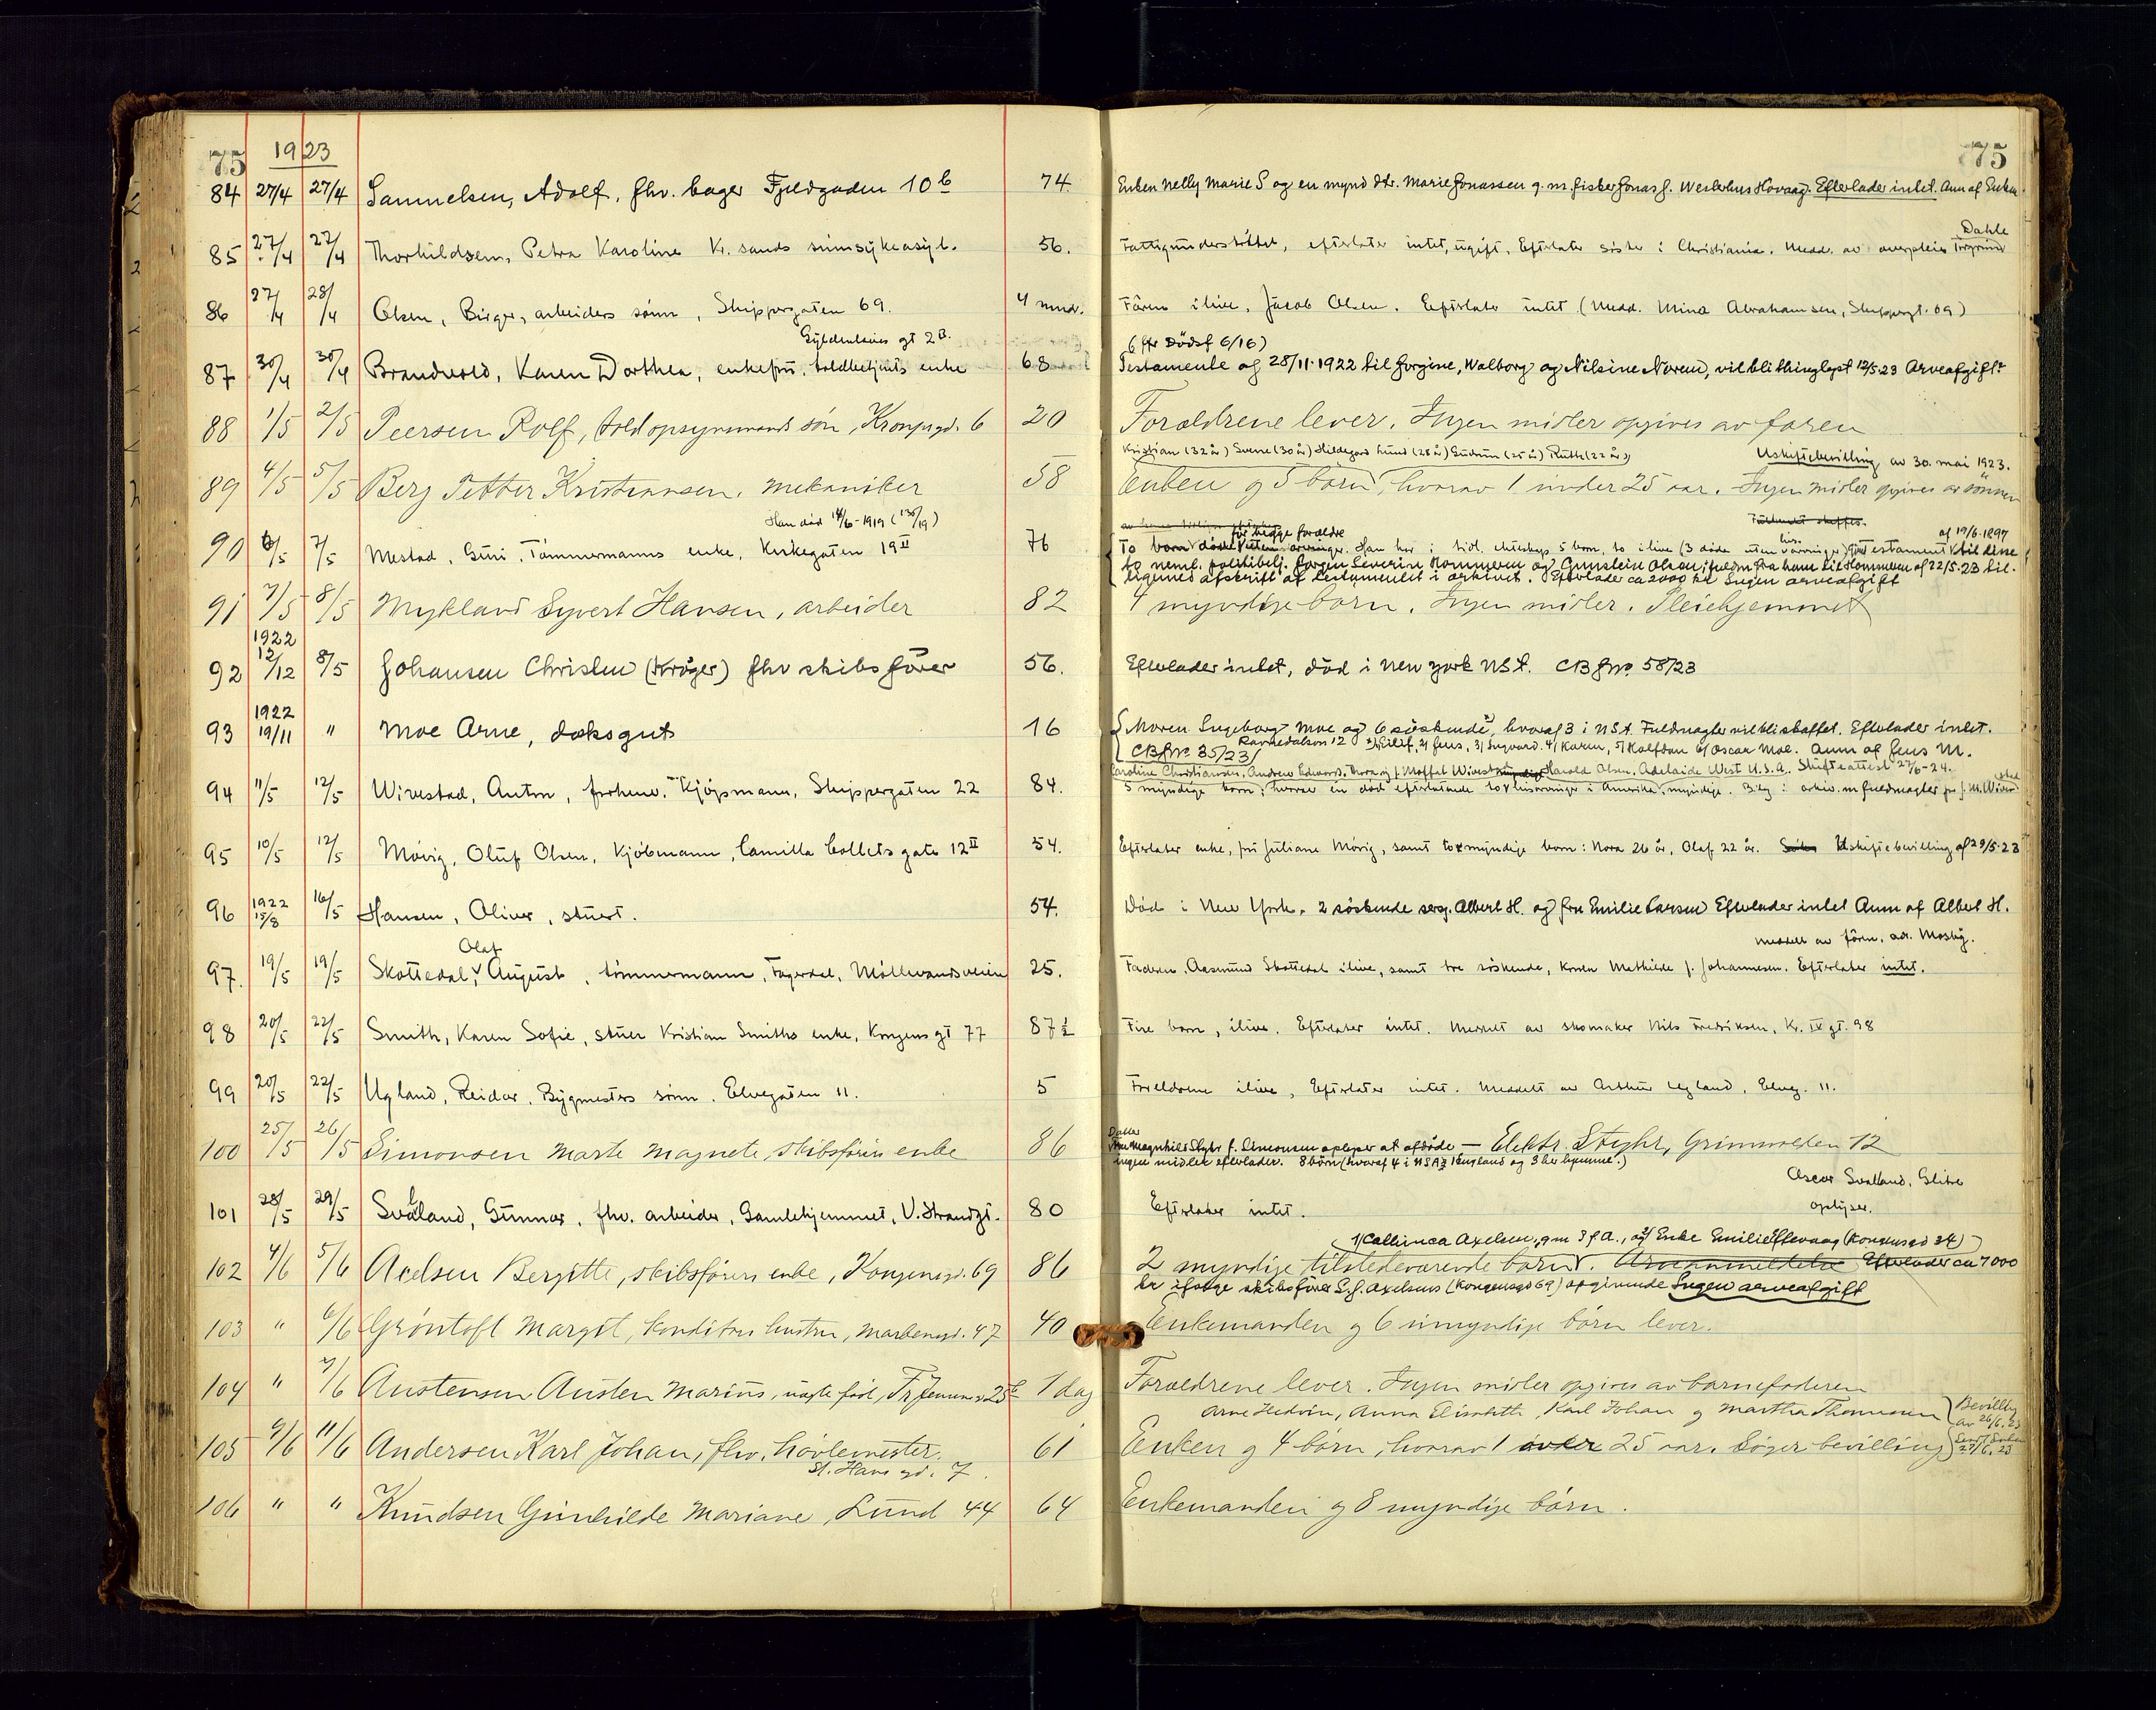 75 1923
75
84 27/4 27/4 Samuelsen, Adolf, fhv. bager Fjeldgaden 10b 74. Enken Nelly Marie S og en mynd dtr. Marie Jonassen g. m. fisker Jonas J. Westerhus Høvaag. Efterlader intet. Anm af Enken
Dahle
85 27/4 27/4 Thorkildsen, Petra Karoline Kr.sands sinnsykeasyl. 56. Fattigunderstøttet, efterlater intet, ugift. Efterlater søster i Christiania. Medd. av overpleier
86 27/4 28/4 Olsen, Birger, arbeiders sønn, Skippergaten 69. 4 mnd. Faren ilive, Jacob Olsen. Efterlater intet (Medd. Mina Abrahamsen, Skippergt. 69)
Gyldenløves gt 2B.
(fr Dødsf 6/16)
87 30/4 30/4 Brandvold, Karen Dorthea, enkefru, toldbetjents enke 68 Testamente af 28/11-1922 til Jorgine, Walborg og Nilsine Noren, vil bli thinglyst 12/5-23 Arveafgift?
88 1/5 2/5 Peersen Rolf, toldopsynsmands søn, Kronpsgd. 6 20 Forældrene lever. Ingen midler opgives av faren
Kristian (32 år) Sverre (30 år) Hildegard Lund (28 år) Gudrun (25 år) Ruth (22 år) Uskiftebevilling av 30. mai 1923.
89 4/5 5/5 Berg Petter Kristiansen, mekaniker 58 Enken og 5 børn, hvorav 1 under 25 aar. Ingen midler opgives av sønnen
Han død 14/6-1919 (130/19)
for begge forældre
af 19/6-1897
90 6/5 7/5 Mestad, Guri, Tømmermanns enke, Kirkegaten 19II 76 To barn døde uten arvinger. Han har i tidl. ekteskap 5 barn, to ilive (3 døde uten arvinger) Testament til disse
to neml. politibetj. Jørgen Severin Hommeren og Gunstein Olsen; fuldm fra ham til Hommeren af 22/5-23 til-
ligemed afskrift af testamentet i arkivet. Efterlader ca 2000 kr Ingen arveafgift
91 7/5 8/5 Mykland Syvert Hansen, arbeider 82 4 myndige børn. Ingen midler. Pleiehjemmet
1922
92 12/12 8/5 Johansen Christen (Krøger) fhv skibsfører 56. Efterlader intet, død i New York USA. CBJno. 58/23
1922
93 19/11 " Moe Arne, dæksgut 16 Moren Ingeborg Moe og 6 søskende, hvoraf 3 i USA. Fuldmagter vil bli skaffet. Efterlader intet.
CBJno 35/23 Ravnedalsvn 12 1/ Eilif, 2/ Jens, 3/ Ingvard. 4/ Karen, 5/ Halfdan 6/ Oscar Moe. Anm af Jens M.
Caroline Christiansen, Andrew Edward, Moffat Wivestad Harald Olsen, Adelaide West U.S.A. Skifteattest 27/6-24.
94 11/5 12/5 Wivestad, Anton, forhenv. Kjøpmann, Skippergaten 22 84. 5 myndige barn, hvorav en død efterlatende to livsarvinger i Amerika, myndige. 3 eg i arkiv. m fuldmagter
95 10/5 12/5 Møvig, Oluf Olsen, Kjøbmann, Camilla Collets gate 12II 54. Efterlater enke, fru Juliane Møvig, samt to myndige barn: Nora 26 år, Olaf 22 år. Uskiftebevilling af 29/5-23
96 1922 15/8 16/5 Hansen, Oliver, stuert. 54. Død i New York. 2 søskende serg. Albert H. og fru Emilie Larsen Efterlader intet Anm af Albert H.
Olaf
meddelt av faren, adr. Mosby.
97. 19/5 19/5 Skottedal, August, tømmermann, Fagerdal, Møllevandsveien 25. Faderen, Aasmund Skottedal ilive, samt tre søskende, konen Mathilde f. Johannesen. Efterlater intet.
98 20/5 22/5 Smith, Karen Sofie, stuer Kristian Smiths enke, Kongens gt 77 87½ Fire barn, ilive. Efterlater intet. Meddelt av skomaker Nils Fredriksen, Kr. IV gt. 98
99 20/5 22/5 Ugland, Reidar, Bygmesters sønn, Elvegaten 11. 5 Foreldrene ilive, Efterlater intet. Meddelt av Arthur Ugland, Elveg. 11.
Datter
100 25/5 26/5 Simonsen Marte Magnete, skibsførers enke 86 Fru Magnhild Styhr f. Simonsen oplyser at afdøde — Elektr. Styhr, Grimvolden 12
ingen midler efterlader. 8 børn (hvoraf 4 i USA, 1 England og 3 her hjemme.)
Oscar Svaland, Glitre
101 28/5 29/5 Svaland, Gunnar, fhv. arbeider, Gamlehjemmet, V. Strandgt. 80 Efterlater intet. oplyser.
1/ Cathinca Axelsen, gm J. A., og 2/ Enke Emilie Eftevaag (Kongensgd 34)
102 4/6 5/6 Axelsen Bergitte, skibsførers enke, Kongensgd. 69 86 2 myndige tilstedeværende børn. Arveanmeldelse Efterlader ca 7000
kr ifølge skibsfører S. J. Axelsens (Kongensgd 69) opgivende Ingen arveafgift
103 " 6/6 Grøntoft Margit, konditors hustru, Markensgd. 47 40 Enkemanden og 6 umyndige børn lever.
104 " 7/6 Austensen Austen Marius, uægte født, Tr. Jensens 25b 1 dag Forældrene lever. Ingen midler opgives av barnefaderen
Arne Hedvin, Anna Elisabeth, Karl Johan og Martha Thomassen Bevilling av 26/6.23
105 9/6 11/6 Andersen Karl Johan, fhv. høvlemester. 61 Enken og 4 børn, hvorav 1 over 25 aar. Søger bevilling Sendt Enken 27/6.23
St. Hans gd. 7.
106 " " Knudsen Gunhilde Mariane, Lund 44 64 Enkemanden og 8 myndige børn.